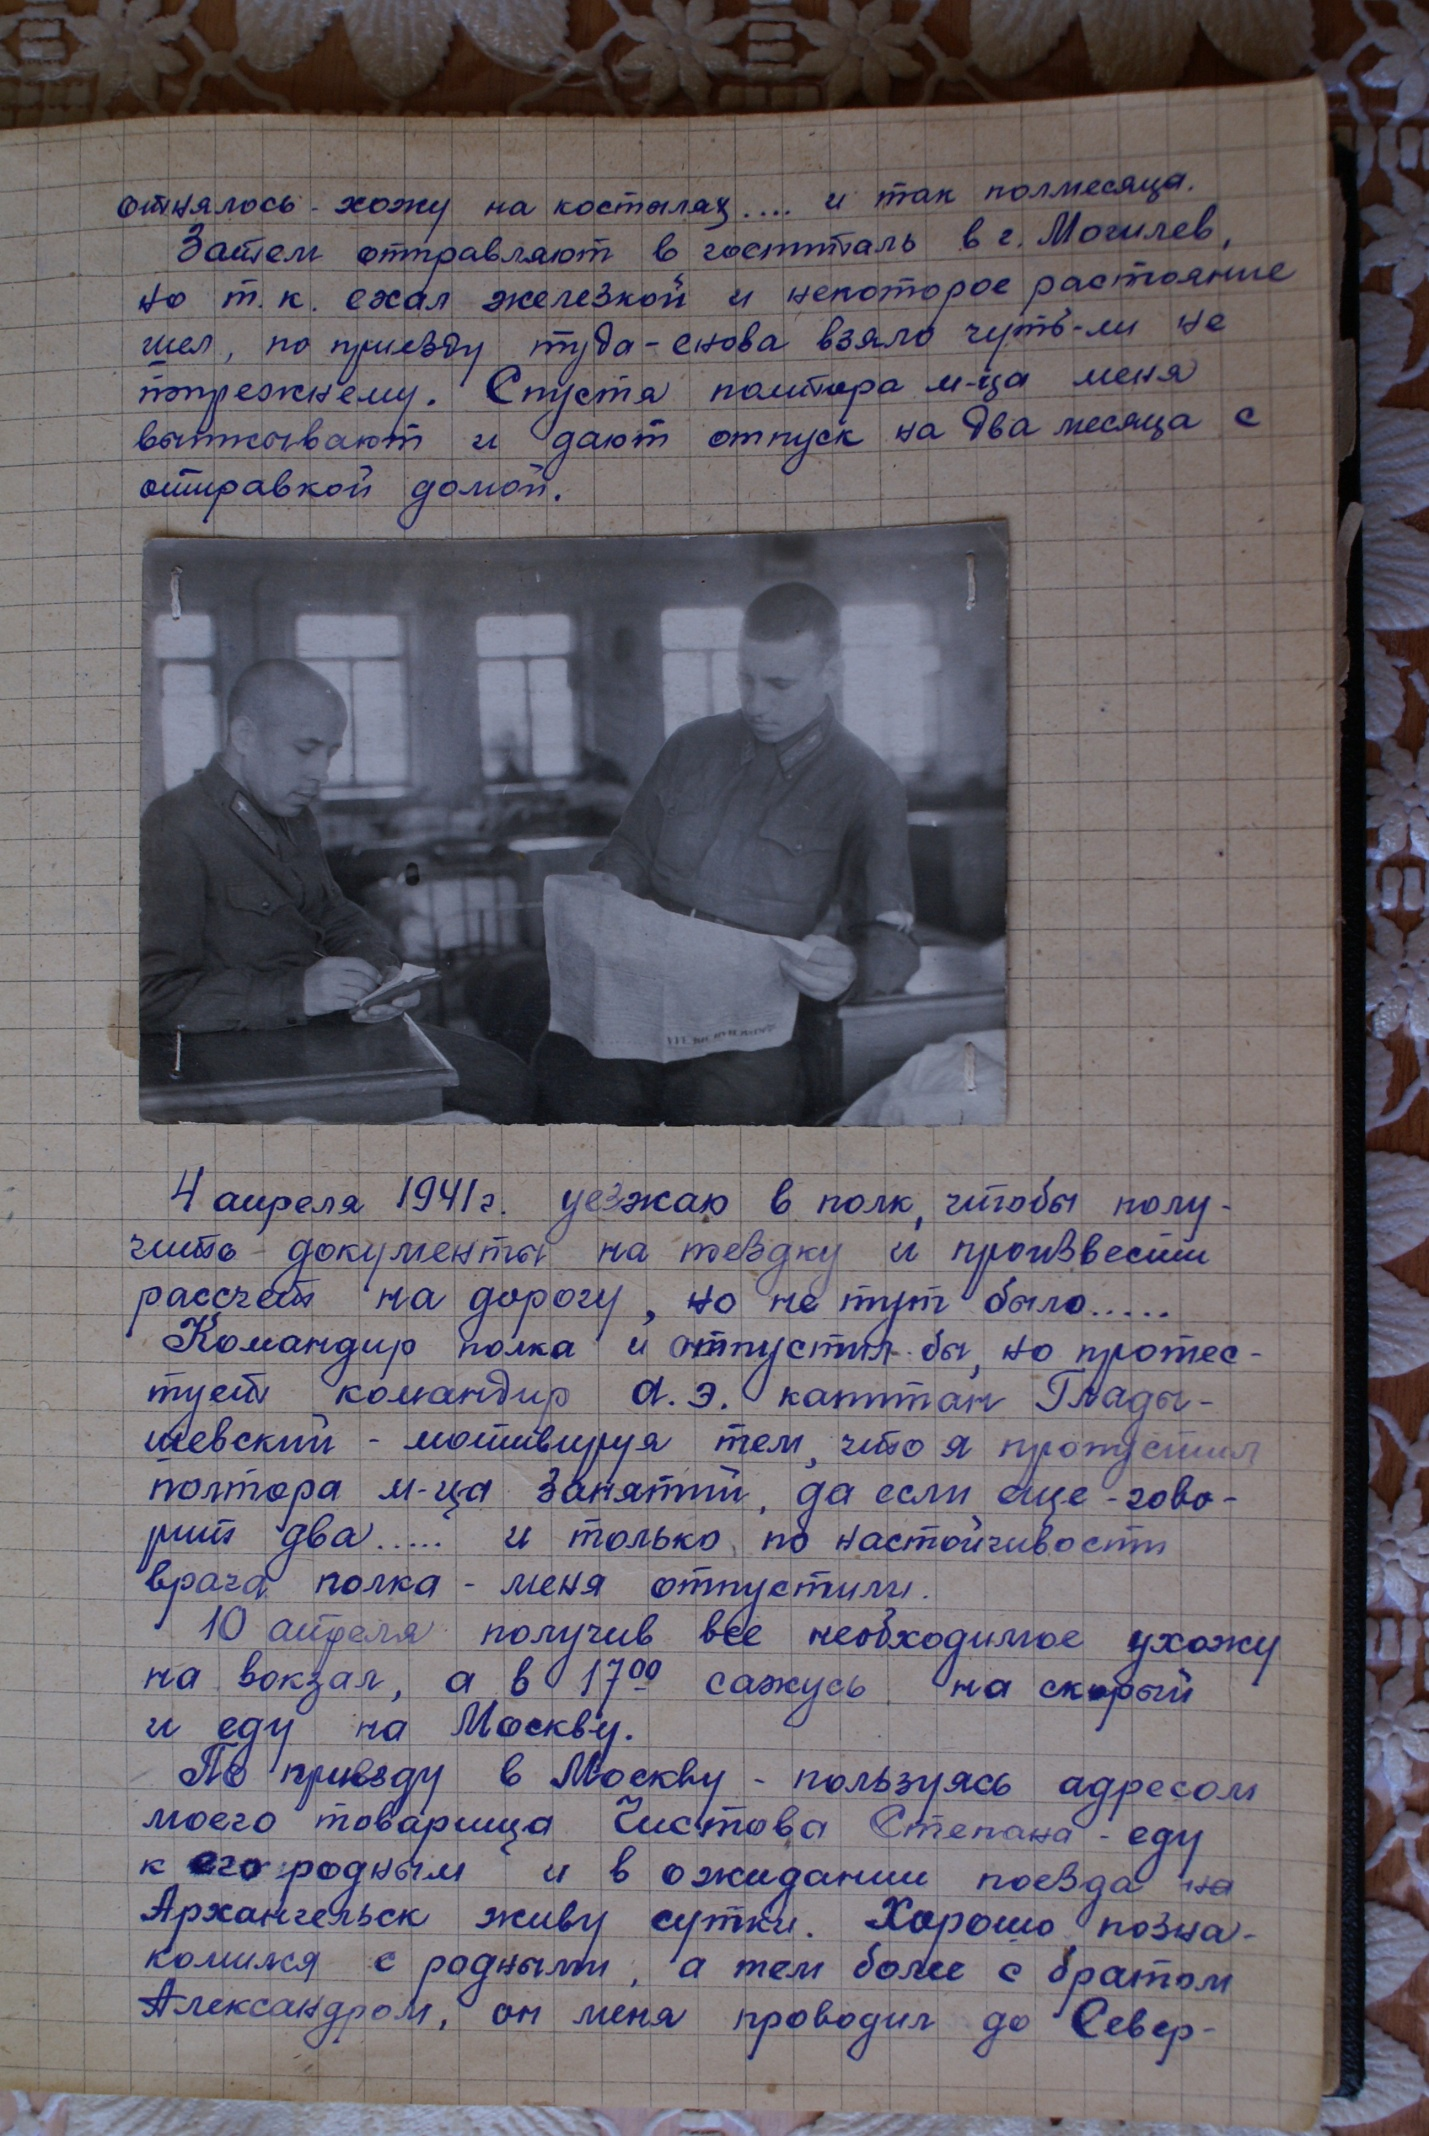 отнялось - хожу на костылях .... и так полмесяца.
Затем отправляют в госпиталь в г. Могилев,
но т.к. ехал железкой и некоторое растояние
шел, по приезду туда - снова взяло чуть-ли не
попрежнему. Спустя полтора м-ца меня
выписывают и дают отпуск на два месяца с
отправкой домой.
4 апреля 1941 г. уезжаю в полк, чтобы полу-
чить документы на поездку и произвести
рассчет на дорогу, но не тут было.....
Командир полка и отпустил бы, но протес-
тует командир а.э. капитан Глады-
шевский - мотивируя тем, что я пропустил
полтора м-ца занятий, да если еще - гово-
рит два ..... и только по настойчивости
врача полка - меня отпустили.
10 апреля получив все необходимое ухожу
на вокзал, а в 17 00 сажусь на скорый
и еду на Москву.
По приезду в Москву - пользуясь адресом
моего товарища Чистова Степана - еду
к его родным и в ожидании поезда на
Архангельск живу сутки. Хорошо позна-
комился с родными, а тем более с братом
Александром, он меня проводил до Север-